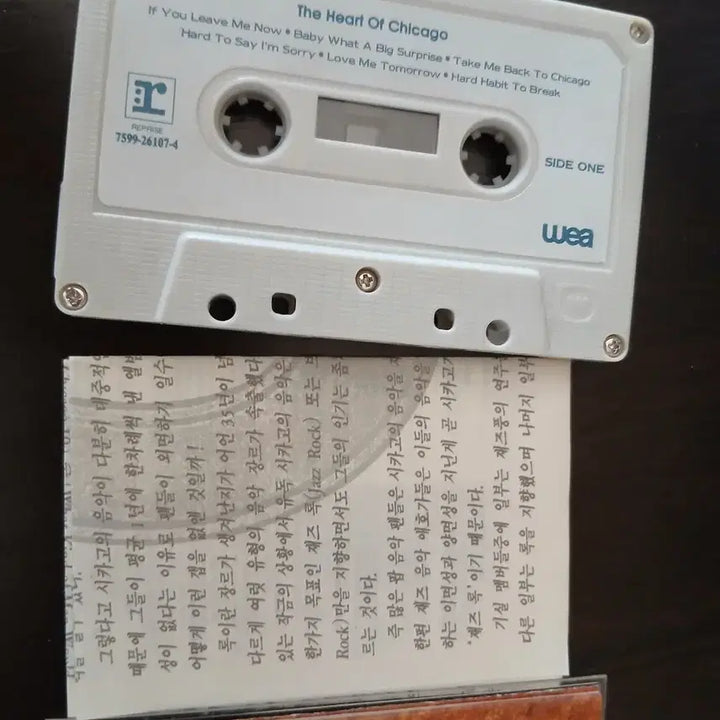 The Heart Of Chicago
If You Leave Me Now • Baby What A Big Surprise • Take Me Back To Chicago
Hard To Say I'm Sorry • Love Me Tomorrow • Hard Habit To Break
r
REPRISE
7599-26107-4
SIDE ONE
wea
그렇다고 시카고의 음악이 다분히 대중적인
때문에 그들이 평균 1년에 한차례씩 낸 앨범
성이 없다는 이유로 팬들이 외면하기 일수
어떻게 이런 갭을 없앤 것일까!
록이란 장르가 생겨난지가 어언 35년이 넘
다르게 여럿 유형의 음악 장르가 속출했다
있는 작금의 상황에서 유독 시카고의 음악은
한가지 목표인 재즈 록(Jazz Rock) 또는
Rock)만을 지향하면서도 그들의 인기는
르는 것이다.
즉 많은 팝 음악 팬들은 시카고의 음악을
한편 재즈 음악 애호가들은 이들의 음악을
하는 이면성과 양면성을 지닌게 곧 시카고
'재즈 록'이기 때문이다.
기실 멤버들중에 일부는 재즈풍의 연주
다른 일부는 록을 지향했으며 나머지 일부